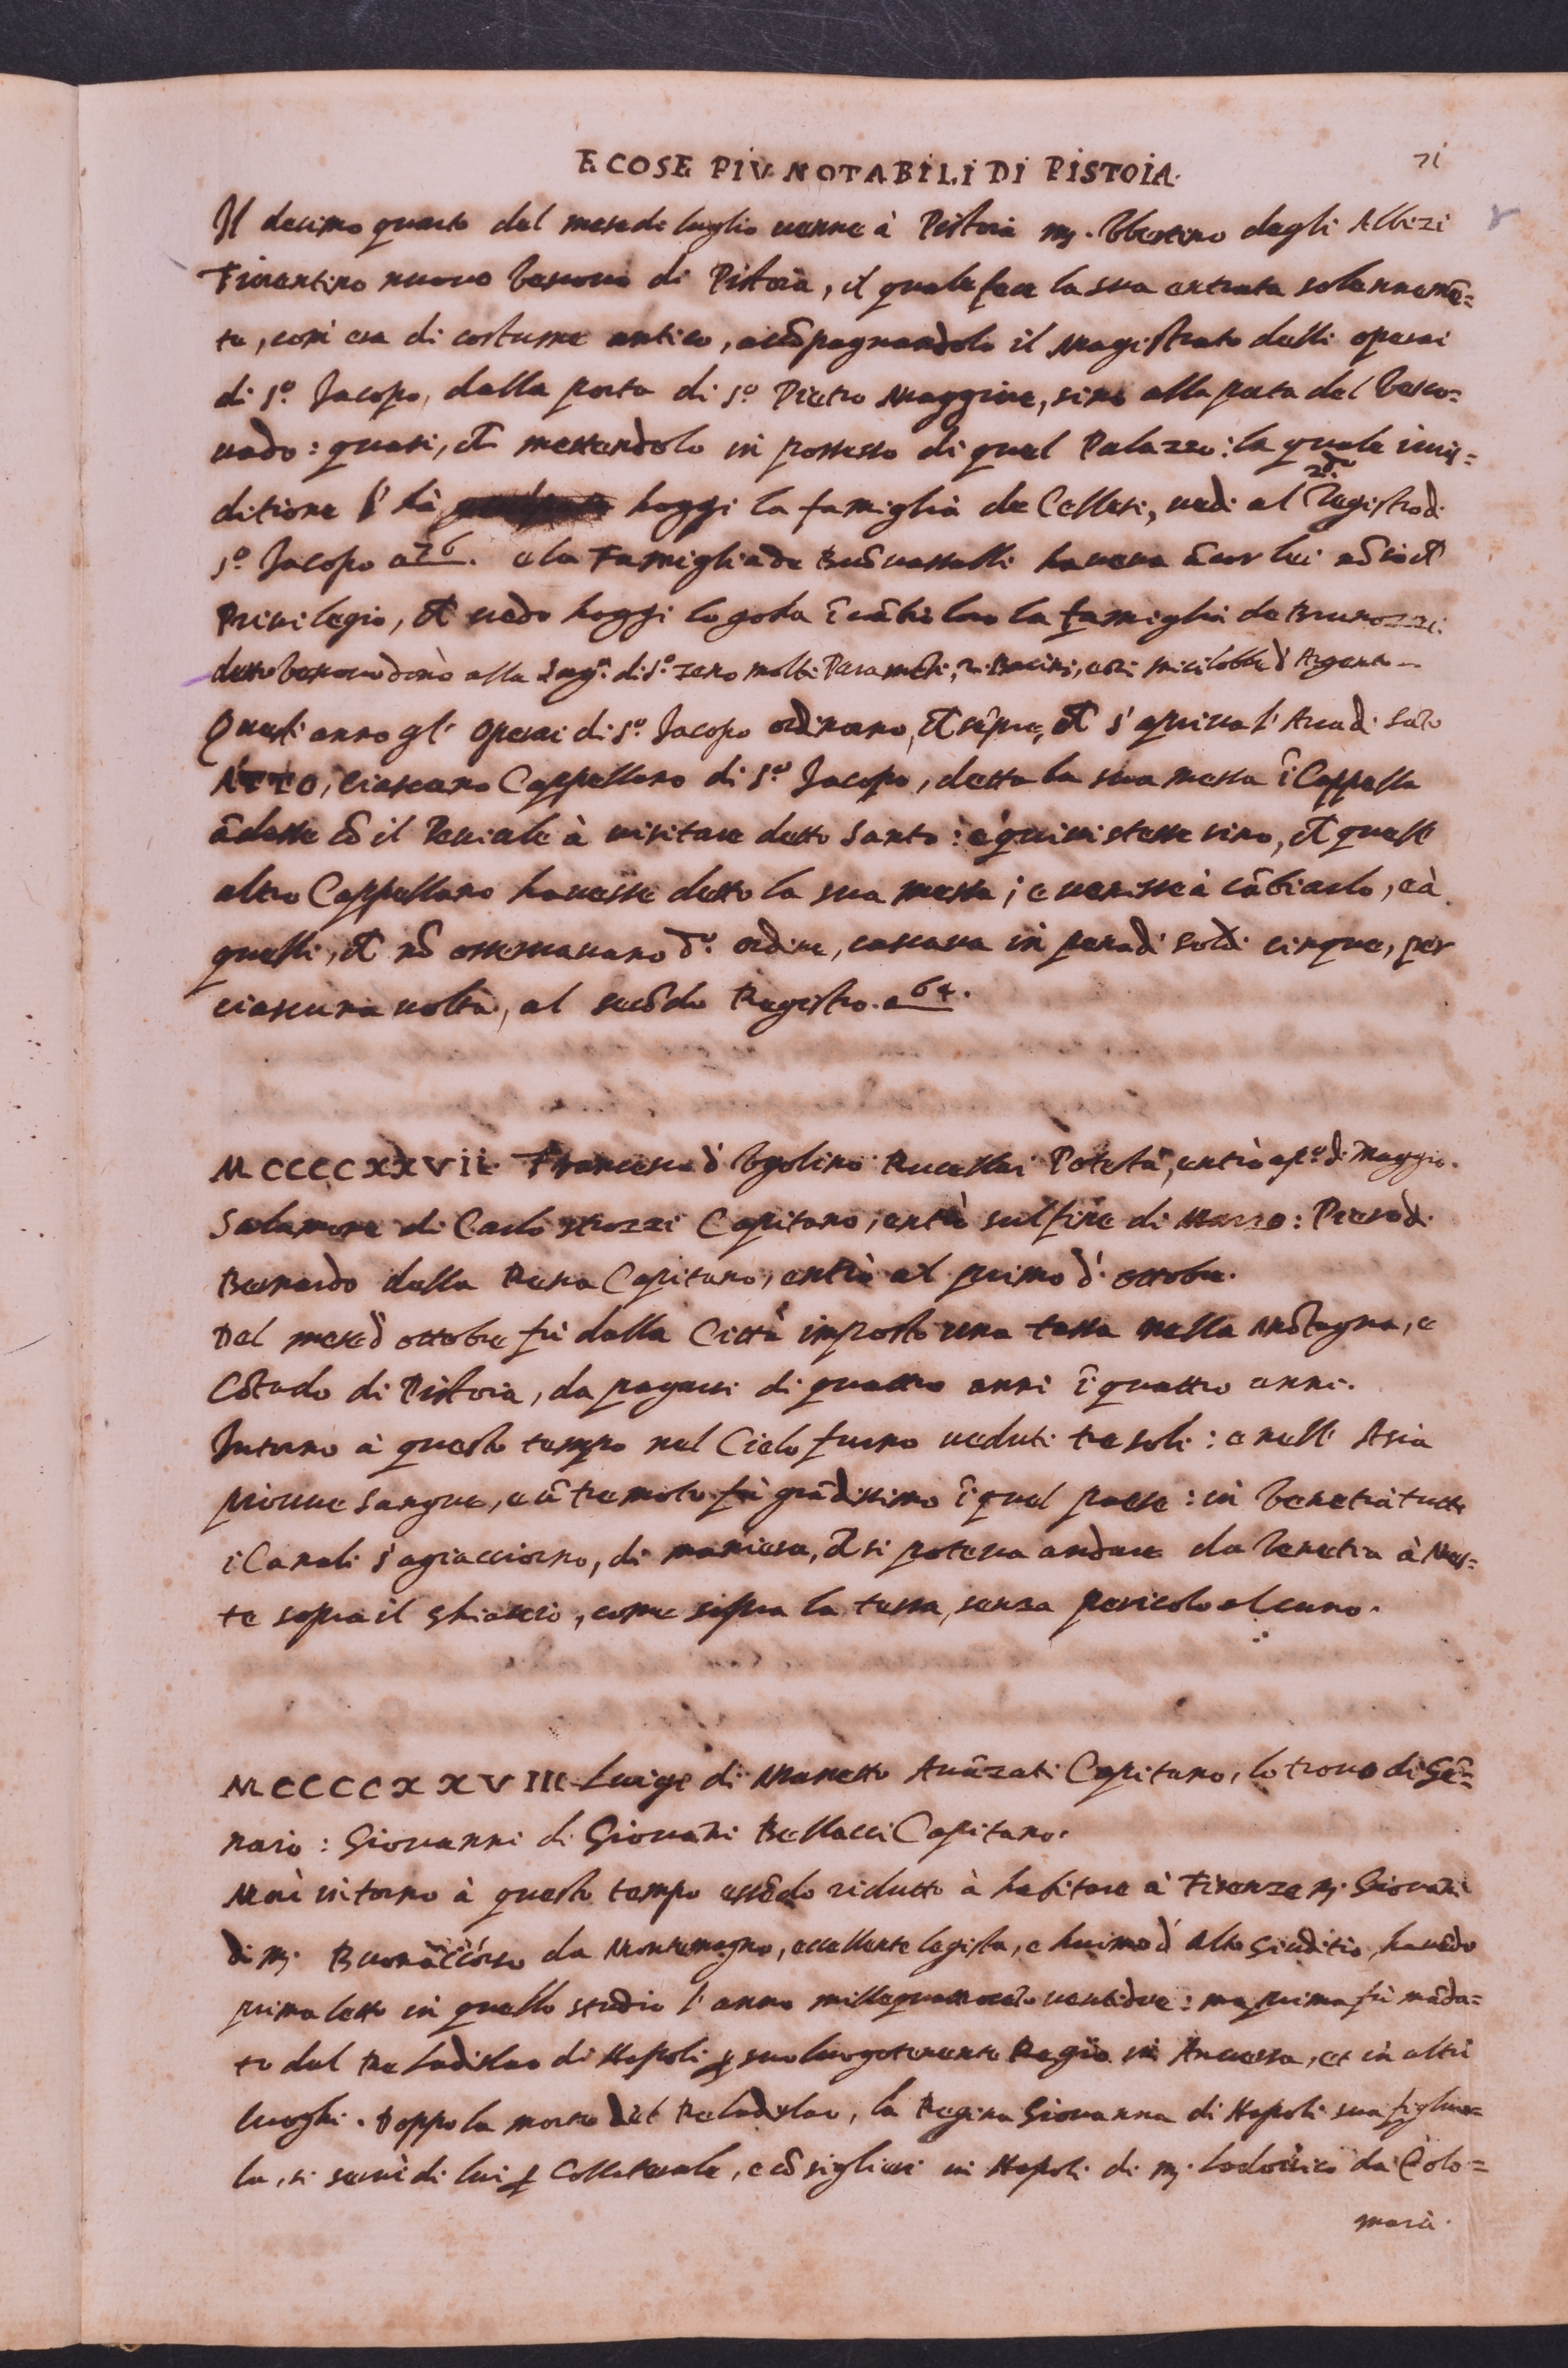 E COSE PIV NOTABILI DI PISTOIA. 71
Il decimo quarto del mese di luglio uenne à Pistoia mr. Vbertino degli Albizi
Fiorentino nuouo Vescouo di Pistoia, il quale fece la sua entrata solennemē=
te, com'era di costume antico, accōpagnandolo il Magistrato delli operai
di S.º Jacopo, dalla porta di S.º Pietro Maggiore, sino alla porta del Vesco=
uado: quasi, cħ mettendolo in possesso di quel Palazzo: la quale iuris=
ditione l'hà hoggi la famiglia de Cellesi, uedi al 2.do Registro di
S.º Jacopo a 76. e la Famiglia de Buōuassalli haueua ācor lei
Priuilegio, cħ uedo hoggi lo goda ī cābio loro la famiglia de Brunozzi.
detto Vescouo donò alla Sag.a di S.º Zeno molti Paramēti, Bacini, d'Argento
Quest'anno gl' Operai di S.º Jacopo ordinorno, cħ sēpre, cħ s'apriua l'Arca di Sāto
Atto, ciascuno Cappellano di S.º Jacopo, detta la sua messa ī Cappella
ādasse cō il Peuiale à uisitare detto Santo: e quiui stesse sino, cħ quell'
altro Cappellano hauesse detto la sua messa; e uenisse à cābiarlo, e à
quelli, cħ nō osseruauano d.º ordine, cascaua in pena di soldi cinque, per
ciascuna uolta, al secōdo Registro. a 64.
MCCCCXXVII. Francesco d'Vgolino Rucellai Potestà, entrò a p.º di Maggio.
Salamone di Carlo Strozzi Capitano, entrò sul fine di Marzo: Piero di
Bernardo della Rena Capitano, entrò al primo d'ottobre.
Del mese d'ottobre fù dalla Città imposto una tassa nella Mōtagna, e
Cōtado di Pistoia, da pagarsi di quattro anni ī quattro anni.
Intorno à questo tempo nel Cielo furno ueduti tre soli: e nell'Asia
piouue sangue, e ū tremoto fù grādissimo ī quel paese: in Venetia tutti
i Canali s'agiacciorno, di maniera, cħ si poteua andare da Venetia à Mes=
te sopra il ghiaccio, come sopra la terra, senza pericolo alcuno.
MCCCCXXVIII. Luigi di Manetto Auāzati Capitano, lo trouo di Gē=
naio: Giouanni di Giouāni Bellacci Capitano.
Morì intorno à questo tempo essēdo ridutto à habitare à Firenze mr. Giouāni
di mr. Buonaccorso da Montemagno, eccellente legista, e huomo d'alto giuditio, hauēdo
prima letto in quello studio l'anno millequattrocēto uentidue: ma prima fù māda=
to dal Re Ladislao di Napoli ꝑ suo luogotenente Regio in Anuersa, et in altri
luoghi. Doppo la morte del Re Ladislao, la Regina Giouanna di Napoli sua figliuo=
la, si seruì di lui ꝑ Collaterale, e cōsigliere in Napoli di mr. Lodouico da Colo=
marà.